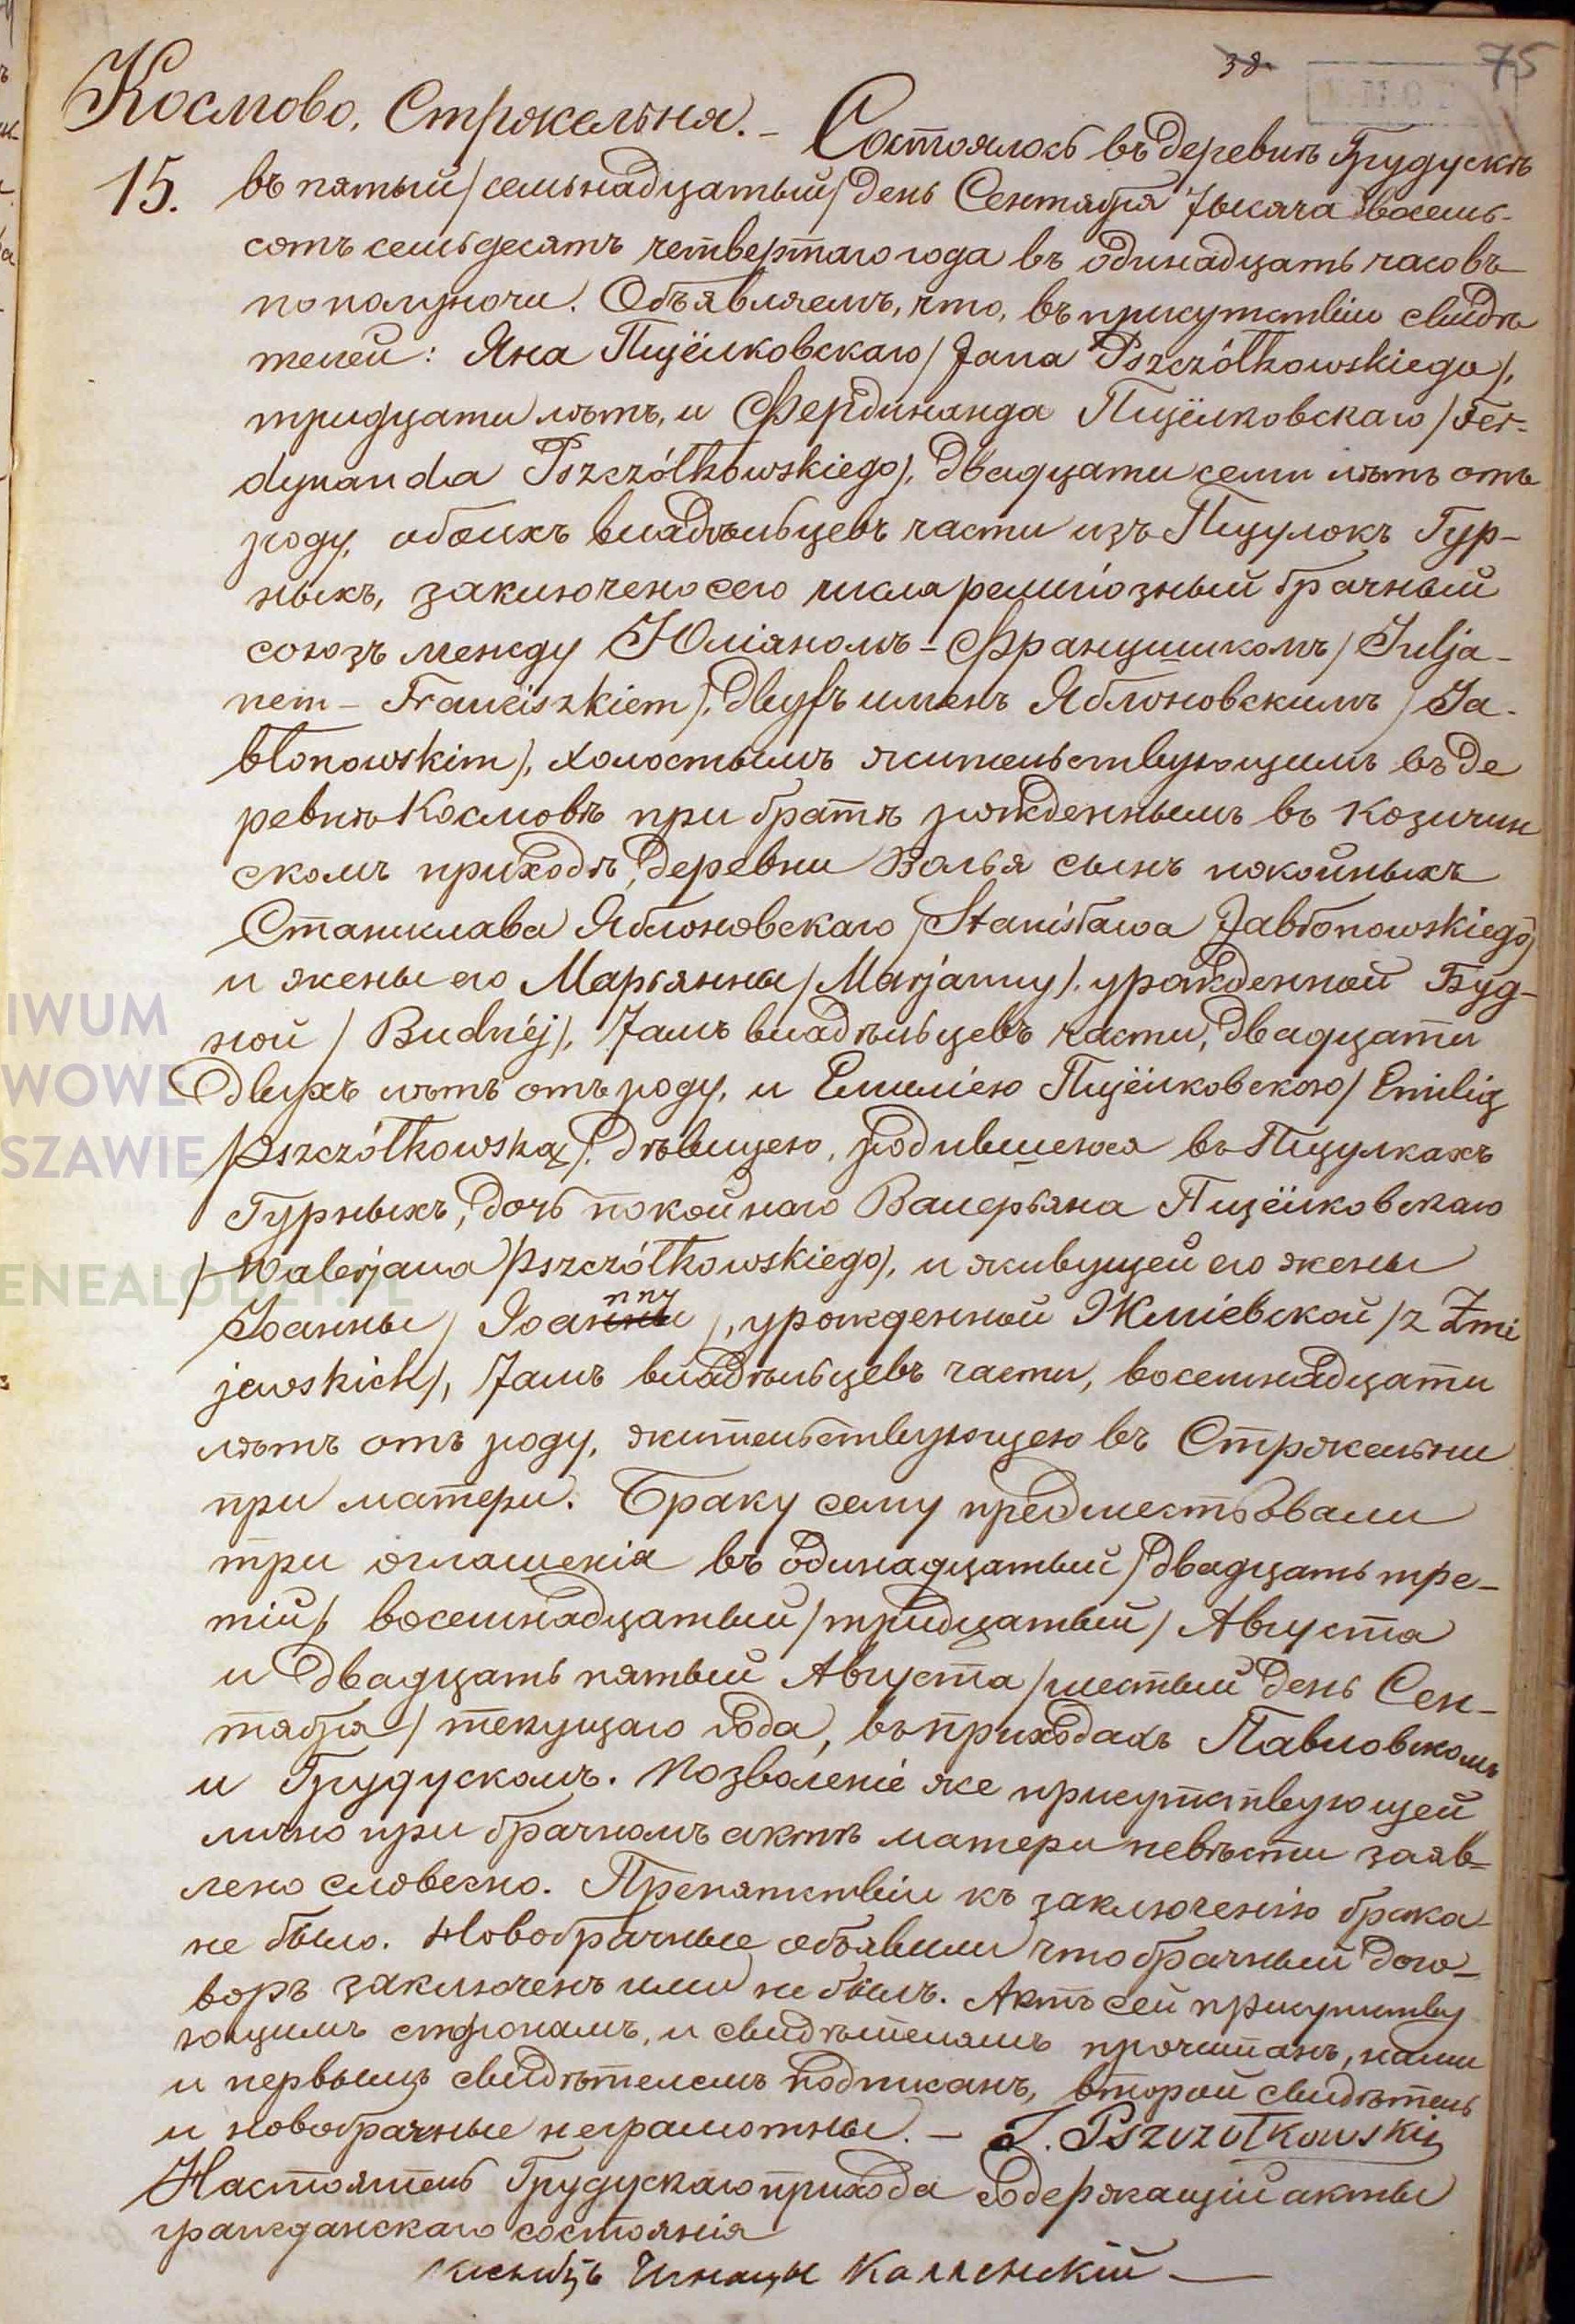 38.
75
Космово, Стржкельня. –
Состоялось въ деревнѣ Грудускѣ
15.
въ пятый /семьнадцатый/ день Сентября Тысяча восемь-
сотъ семьдесятъ четвертаго года въ одинадцать часовъ
пополуночи. Объявляемъ, что, въ присутствіи свидѣ
телей: Яна Пщёлковскаго /Jana Pszczółkowskiego/,
тридцати лѣтъ, и Фердинанда Пщёлковскаго /Fer-
dynanda Pszczółkowskiego/, двадцати семи лѣтъ отъ
роду, обоихъ владѣльцевъ части изъ Пщулокъ Гур-
ныхъ, заключено сего числа религіозный брачный
союзъ между Юліяномъ-Францишкомъ /Julja-
nem – Franciszkiem/, двухъ именъ Яблоновскимъ /Ja-
błonowskim/, холостымъ жительствующимъ въ де
ревнѣ Космовѣ при братѣ рожденнымъ въ Козичин
скомъ приходѣ, деревни Волья сынъ покойныхъ
Станислава Яблоновскаго /Stanisława Jabłonowskiego/
и жены его Марьянны /Marjanny/, урожденной Буд-
ной /Budnéj/, Тамъ владѣльцевъ части, двадцати
двухъ лѣтъ отъ роду, и Емиліею Пщёлковскою /Emilią
Pszczółkowską/, дѣвицею, родившеюся въ Пщулкахъ
Гурныхъ, дочь покойнаго Валерьяна Пщёлковскаго
/Walerjana Pszczółkowskiego/, и живущей его жены
nny
Іоанны /Joанны/, урожденной Жміевской /z Żmi
jewskich/, Тамъ владѣльцевъ части, восемнадцати
лѣтъ отъ роду, жительствующею въ Стржкельни
при матери. Браку сему предшествовали
три оглашенія въ одинадцатый /двадцать тре-
тій/, восемнадцатый /тридцатый/ Августа
и двадцать пятый Августа /шестый день Сен-
тября/ текущаго года, въ приходахъ Павловскомъ
и Грудускомъ. Позволеніе же присутствующей
лично при брачномъ актѣ матери невѣсти заяв=
лено словесно. Препятствіи къ заключенію брака
не было. Новобрачные объявили что брачный дого-
воръ заключенъ ими не былъ. Актъ сей присутству
ющимъ сторонамъ, и свидѣтелямъ прочитанъ, нами
и первымъ свидѣтелемъ подписанъ, второй свидѣтель
и новобрачные неграмотны. – J. Pszczółkowski
Настоятель Грудускаго прихода содержащій акты
гражданскаго состоянія
ксендзъ Игнацы
IWUM
WOWE
SZAWIE
ENEALODZY.PL